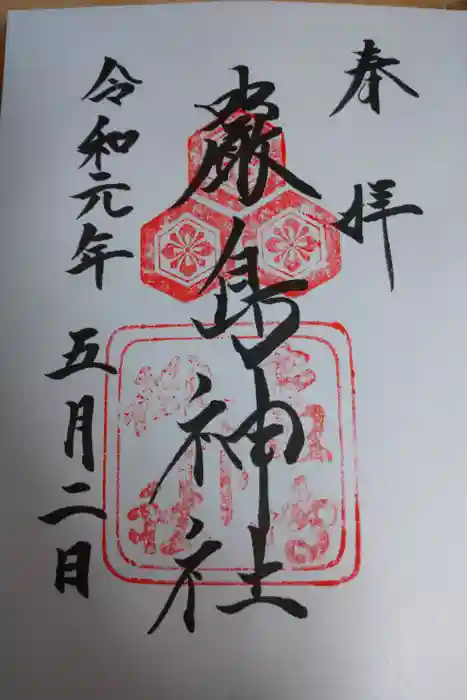 奉拝
厳島神社
令和元年五月二日